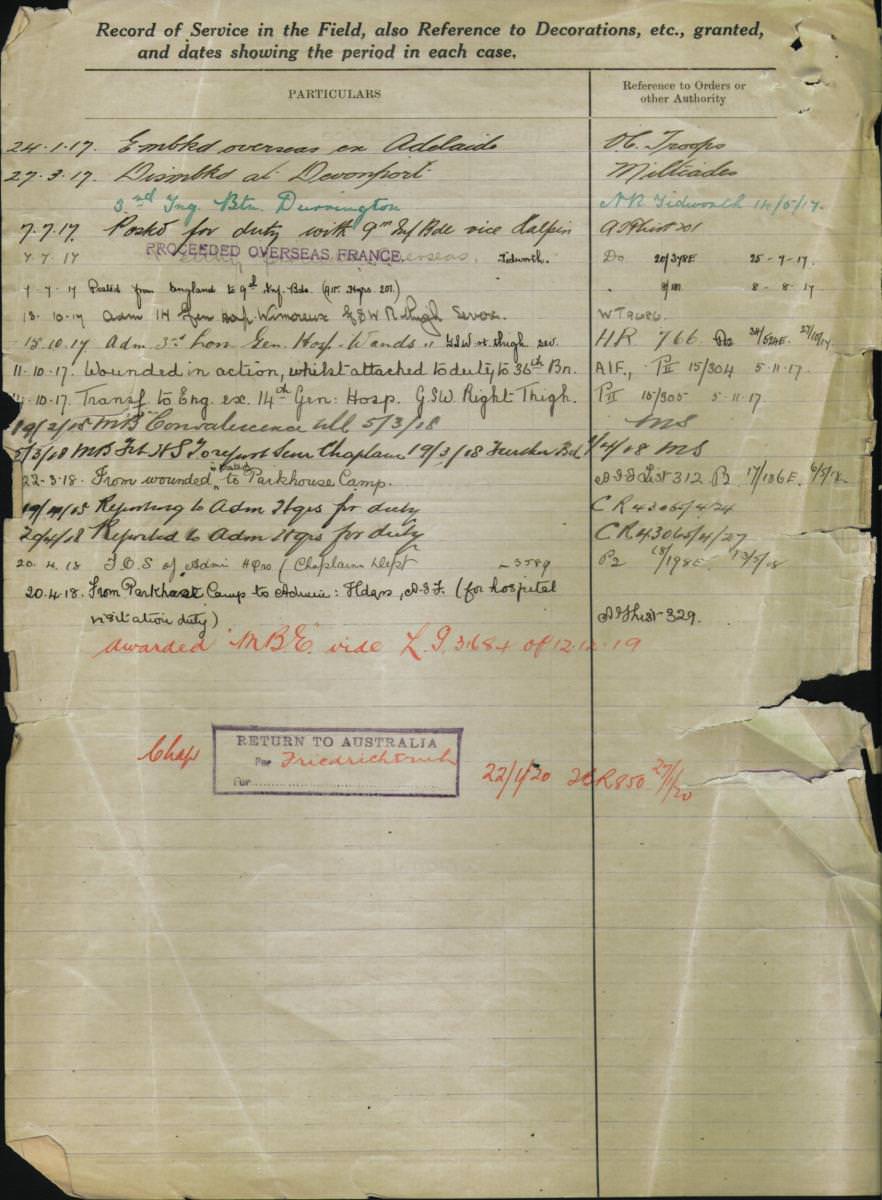 Record of Service in the Field, also Reference to Decorations, etc., granted,
and dates showing the period in each case.
PARTICULARS
Reference to Orders or
other Authority
24.1.17. Embkd overseas ex Adelaide O/C. Troops
27.3.17. Dismbkd at Devonport Miltiades
3rd Tng. Btn. Durrington Tidworth 14/5/17.
7.7.17. Posted for duty with 9th Inf Bde vice Halpin
PROCEEDED OVERSEAS FRANCE. overseas. Tidworth. Do 20/378E 25-7-17.
7-7-17 Posted from England to 9th Inf. Bde. 8-8-17
13-10-17 Adm 14 Gen Hosp. Wimereux G.S.W R. thigh Severe WT9686.
15.10.17. Adm 3rd Lon. Gen. Hosp. Wands. G.S.W. rt. thigh sev. HR 766
11-10-17. Wounded in action, whilst attached to duty, to 36th Bn. AIF., PII 15/304 5-11-17.
10.17. Transf to Eng. ex. 14th Gen: Hosp. G.S.W. Right Thigh. PII 15/305 5-11-17.
19/2/18 MB Convalescence till 5/3/18 MS
5/3/18 MB Fit H S To report Senr Chaplain 19/3/18 Further Bd 1/4/18 MS
22-3-18. From wounded, posted to Parkhouse Camp. A.I.F List 312 B 17/186E.
Reporting to Adm Hqrs for duty CR43065/4/24
20/4/18 Reported to Adm Hqrs for duty CR43065/4/27
20.4.18 T.O.S of Admin Hqrs (Chaplains Dept P2 18/198E. 13/5/18
20.4.18. From Parkhouse Camp to Admin: Hdqrs, A.I.F. (for hospital
visitation duty) List 329.
awarded "M.B.E." vide L.G. 31684 of 12.12.19
Chap
RETURN TO AUSTRALIA
Per Friedrichsruh
For
22/1/20 R850 27/1/20